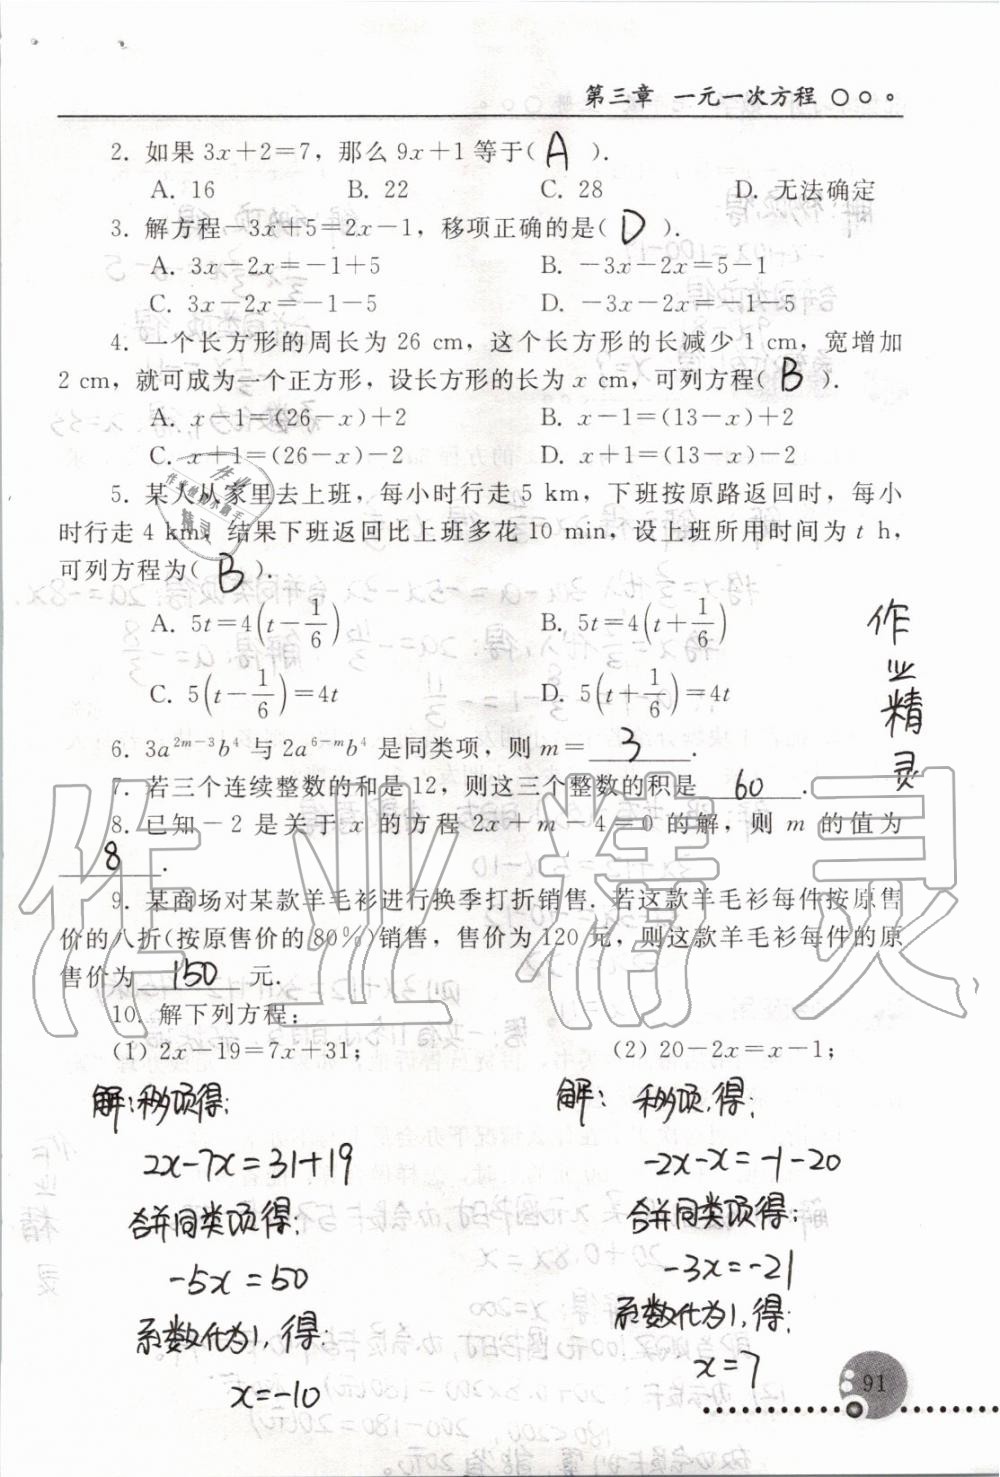 第三章 一元一次方程
2. 如果 3x+2=7，那么 9x+1 等于( A ).
A. 16 B. 22 C. 28 D. 无法确定
3. 解方程-3x+5=2x-1，移项正确的是( D ).
A. 3x-2x=-1+5 B. -3x-2x=5-1
C. 3x-2x=-1-5 D. -3x-2x=-1-5
4. 一个长方形的周长为 26 cm，这个长方形的长减少 1 cm，宽增加
2 cm，就可成为一个正方形，设长方形的长为 x cm，可列方程( B ).
A. x-1=(26-x)+2 B. x-1=(13-x)+2
C. x+1=(26-x)-2 D. x+1=(13-x)-2
5. 某人从家里去上班，每小时行走 5 km，下班按原路返回时，每小
时行走 4 km，结果下班返回比上班多花 10 min，设上班所用时间为 t h，
可列方程为( B ).
A. 5t=4(t-1/6) B. 5t=4(t+1/6)
C. 5(t-1/6)=4t D. 5(t+1/6)=4t
作业精灵
6. 3a^{2m-3}b^4 与 2a^{6-m}b^4 是同类项，则 m= 3 .
7. 若三个连续整数的和是 12，则这三个整数的积是 60 .
8. 已知-2 是关于 x 的方程 2x+m-4=0 的解，则 m 的值为
8 .
9. 某商场对某款羊毛衫进行换季打折销售. 若这款羊毛衫每件按原售
价的八折(按原售价的 80%)销售，售价为 120 元，则这款羊毛衫每件的原
售价为 150 元.
10. 解下列方程：
(1) 2x-19=7x+31； (2) 20-2x=x-1；
解：移项得： 解： 移项,得：
2x-7x=31+19 -2x-x=-1-20
合并同类项得： 合并同类项得：
-5x=50 -3x=-21
系数化为1,得： 系数化为1,得：
x=-10 x=7
91
作业精灵